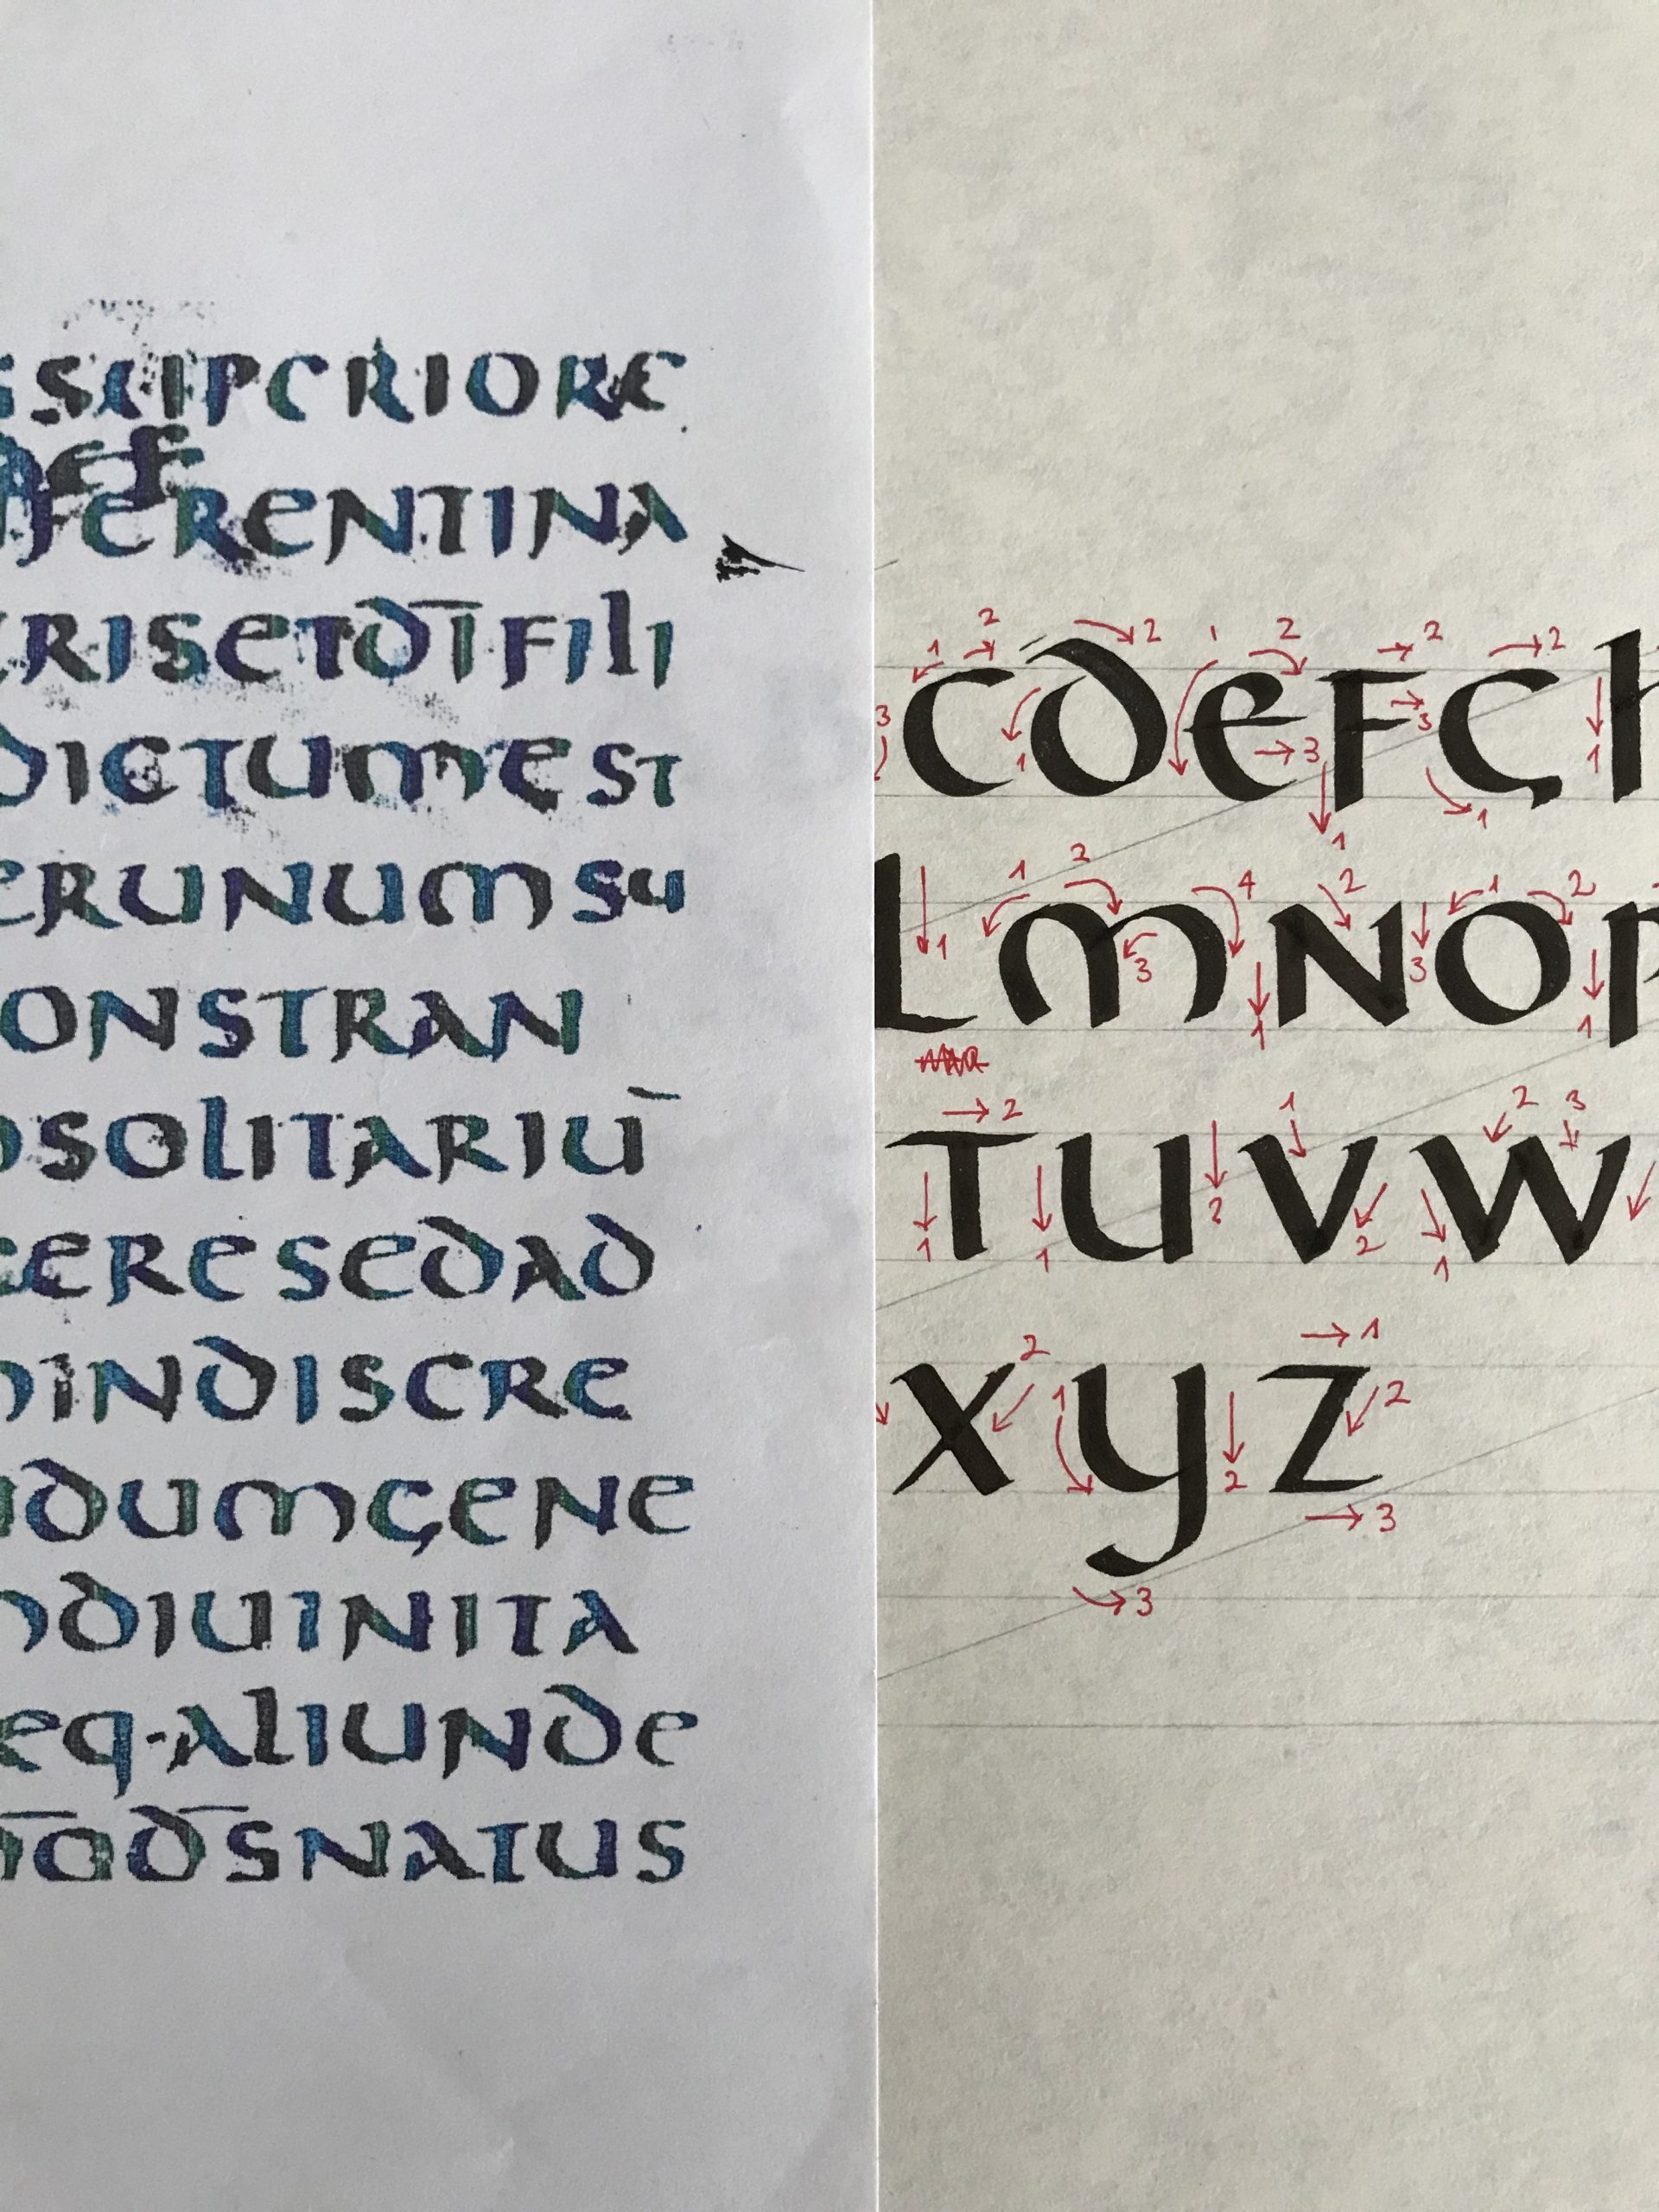 SSUPERIORE
DEF
FERENTINA
RISETD̄I FILI
DICTUMEST
ERUNUMSU
ONSTRAN
SOLITARIŪ
ERESEDAD
INDISCRE
DUMGENE
DIUINITA
EQ·ALIUNDE
ŌD̄SNATUS
C D E F G h
L M N O P
T U V W
X Y Z